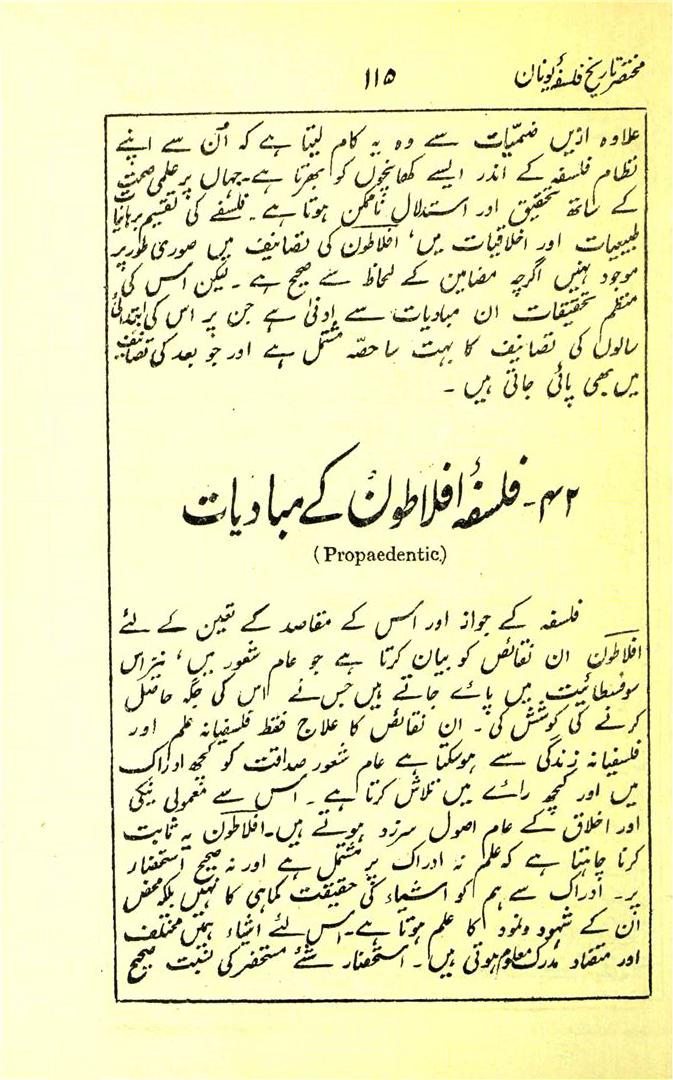 مختصر تاریخ فلسفۂ یونان
۱۱۵
علاوہ ازیں ضمنیات سے وہ یہ کام لیتا ہے کہ اُن سے اپنے
نظام فلسفہ کے اندر ایسے کھانچوں کو بھرتا ہے۔ جہاں پر علمی صحت
کے ساتھ تحقیق اور استدلال ناممکن ہوتا ہے۔ فلسفے کی تقسیم برہانیات
طبیعیات اور اخلاقیات میں، افلاطون کی تصانیف میں صوری طور پر
موجود نہیں اگرچہ مضامین کے لحاظ سے صحیح ہے۔ لیکن اس کی
منظم تحقیقات ان مبادیات سے ادنی ہے جن پر اس کی ابتدائی
سالوں کی تصانیف کا بہت سا حصّہ مشتمل ہے اور جو بعد کی تصانیف
میں بھی پائی جاتی ہیں۔
۴۲۔ فلسفۂ افلاطون کے مبادیات
(Propaedentic.)
فلسفہ کے جواز اور اس کے مقاصد کے تعین کے لئے
افلاطون ان نقائص کو بیان کرتا ہے جو عام شعور میں، نیز اس
سوفسطائیت میں پائے جاتے ہیں جس نے اس کی جگہ حاصل
کرنے کی کوشش کی۔ ان نقائص کا علاج فقط فلسفیانہ علم اور
فلسفیانہ زندگی سے ہوسکتا ہے عام شعور صداقت کو کچھ ادراک
میں اور کچھ رائے میں تلاش کرتا ہے۔ اس سے معمولی نیکی
اور اخلاق کے عام اصول سرزد ہوتے ہیں۔ افلاطون یہ ثابت
کرنا چاہتا ہے کہ علم نہ ادراک پر مشتمل ہے اور نہ صحیح استحضار
پر۔ ادراک سے ہم کو اشیاء کی حقیقت کماہی کا نہیں بلکہ محض
اُن کے شہود و نمود کا علم ہوتا ہے۔ اس لئے اشیاء ہمیں مختلف
اور متضاد مدرک معلوم ہوتی ہیں۔ استحضار شئے مستحضر کی نسبت صحیح